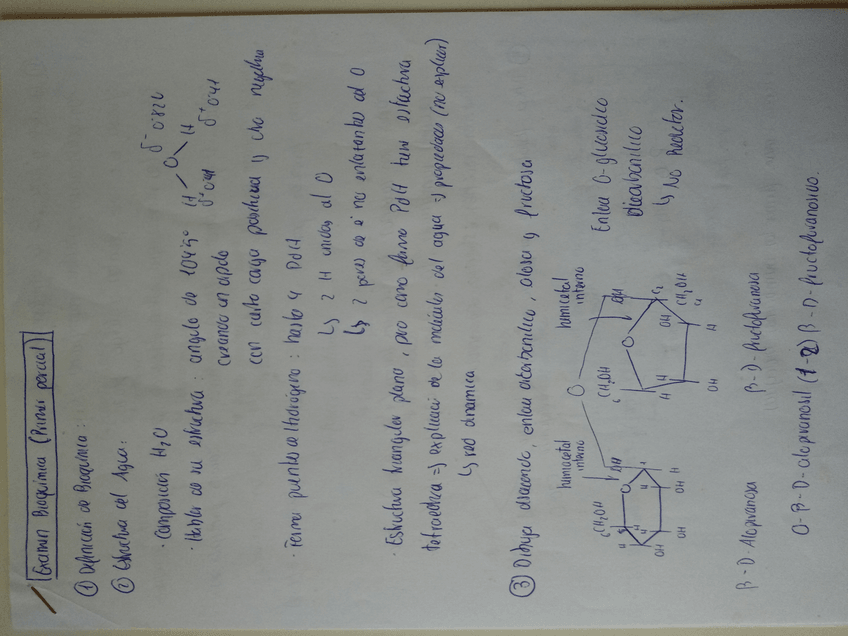 Examen Bioquímica (Primer parcial)
① Definición de Bioquímica:
② Estructura del Agua:
· Composición H₂O
· Habla de su estructura: angulo de 104'5º
creando un dipolo
con carga positiva y otra negativa
H O H
δ⁻ 0'82
δ⁺ 0'41 δ⁺ 0'41
· Forma puentes de hidrógeno: hasta 4 PdH
↳ 2 H unidos al O
↳ 2 pares de e⁻ no enlazantes del O
· Estructura triangular plana, pero como forma PdH tiene estructura
tetraédrica => explicació de la molécula del agua => propiedades (no explicar)
↳ red dinámica
③ Dibuja disacarido, enlace dicarbonilico, alosa y fructosa
hemiacetal
interno
hemicetal
interno
Enlace O-glucosidico
dicarbonilico
↳ No Reductor.
O
⁶CH₂OH O OH H H OH OH OH
⁶CH₂OH O OH C₂ OH CH₂OH H H H OH
β-D-Alopiranosa
β-D-fructofuranosa
O-β-D-alopiranosil (1-2) β-D-fructofuranosido.